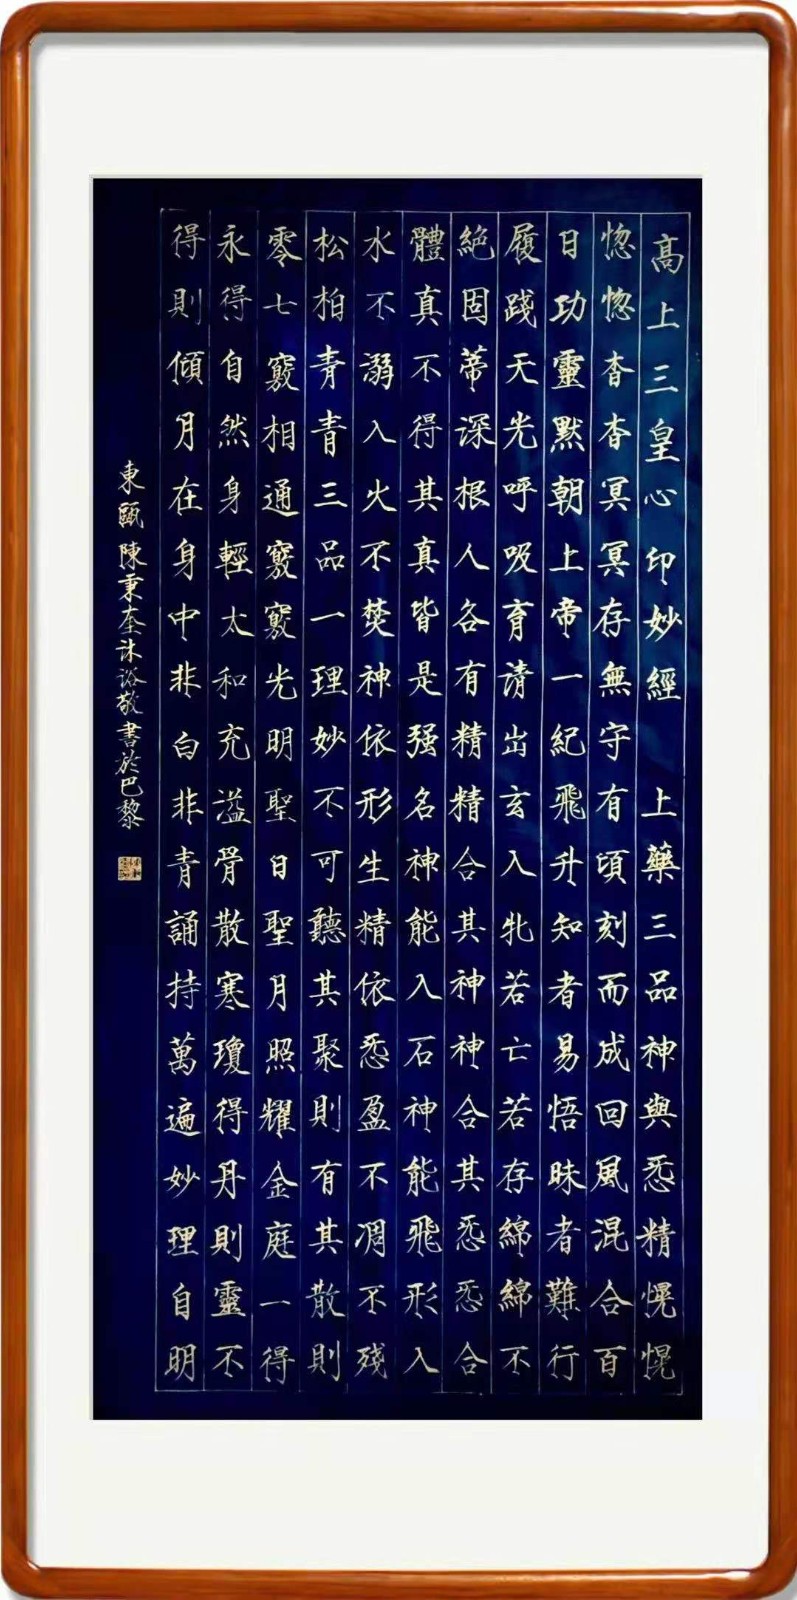 高上三皇心印妙經 上藥三品神與炁精愰愰
惚惚杳杳冥冥存無守有頃刻而成回風混合百
日功靈默朝上帝一紀飛升知者易悟昧者難行
履踐天光呼吸育清出玄入牝若亡若存綿綿不
絕固蒂深根人各有精精合其神神合其炁炁合
體真不得其真皆是强名神能入石神能飛形入
水不溺入火不焚神依形生精依炁盈不凋不殘
松柏青青三品一理妙不可聽其聚則有其散則
零七竅相通竅竅光明聖日聖月照耀金庭一得
永得自然身輕太和充溢骨散寒瓊得丹則靈不
得則傾月在身中非白非青誦持萬遍妙理自明
東甌陳秉奎沐浴敬書於巴黎